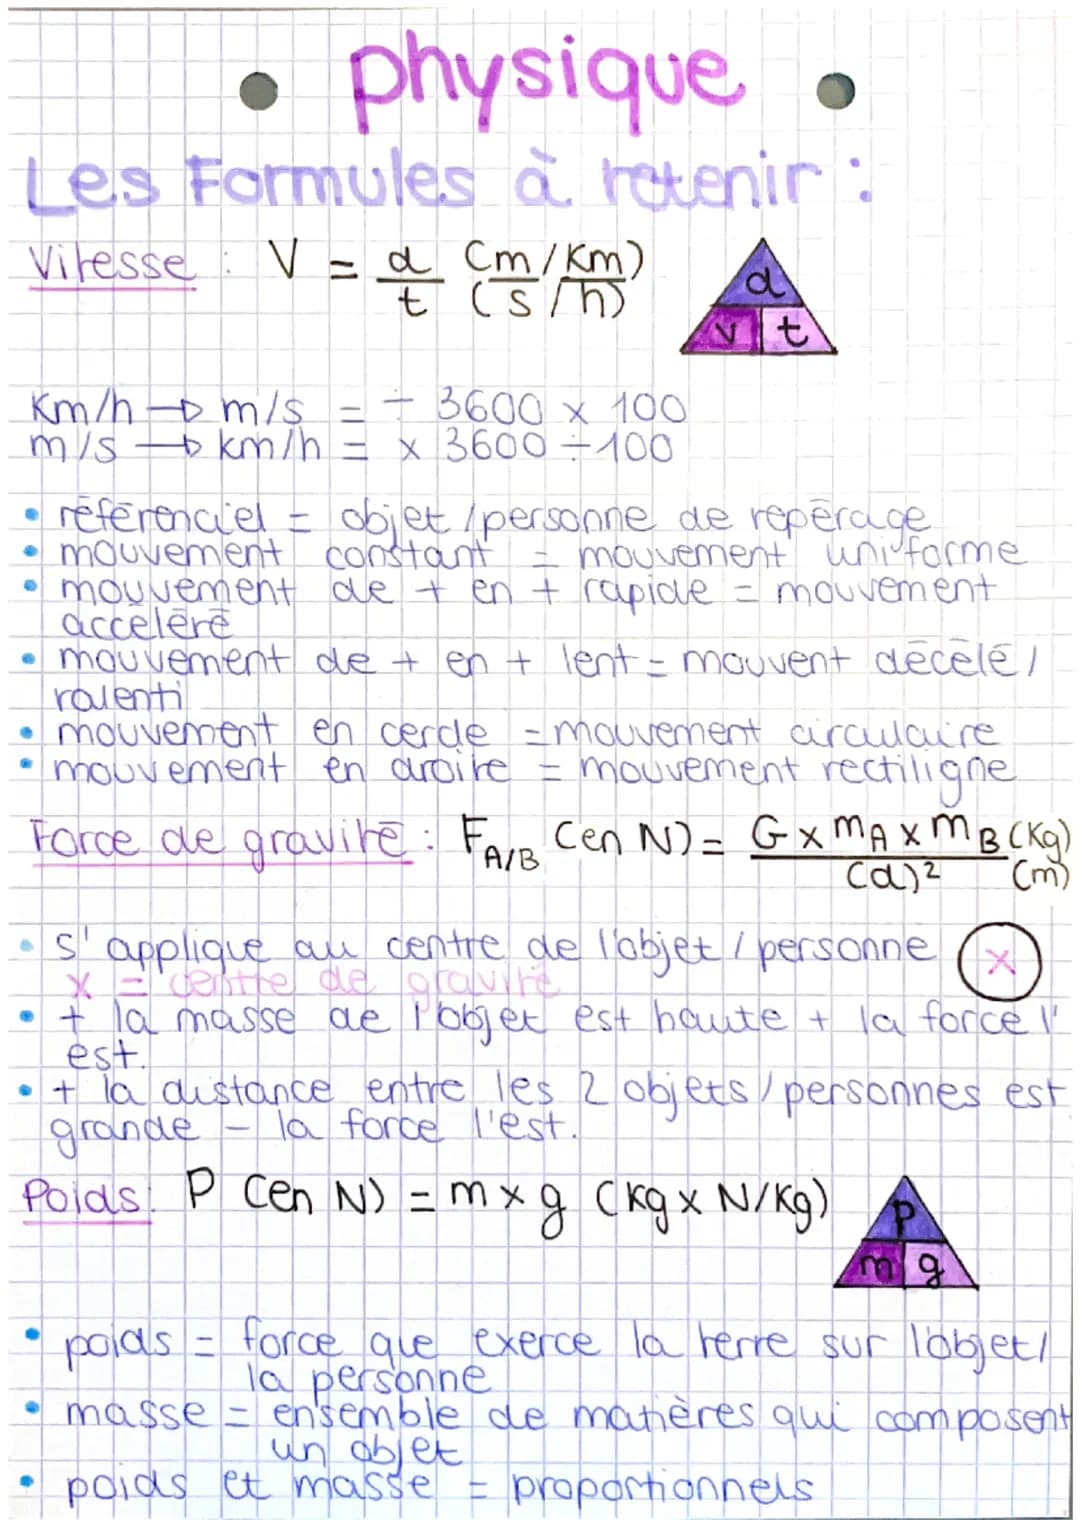 physique
Les Formules à retenir :
Vitesse : V = d/t (m/km)/(s/h)
d
v t
Km/h → m/s = ÷ 3600 x 100
m/s → km/h = x 3600 ÷ 100
• référenciel = objet /personne de repérage
• mouvement constant = mouvement uniforme
• mouvement de + en + rapide = mouvement
accéléré
• mouvement de + en + lent = mouvent décélé /
ralenti
• mouvement en cercle = mouvement circulaire
• mouvement en droite = mouvement rectiligne
Force de gravité : F A/B (en N) = G x mA x mB (Kg)
(d)² (m)
• s'applique au centre de l'objet / personne x
x = centre de gravité
• + la masse de l'objet est haute + la force l'
est.
• + la distance entre les 2 objets / personnes est
grande - la force l'est.
Poids : P (en N) = m x g (Kg x N/Kg)
p
m g
• poids = force que exerce la terre sur l'objet /
la personne
• masse = ensemble de matières qui composent
un objet
• poids et masse = proportionnels